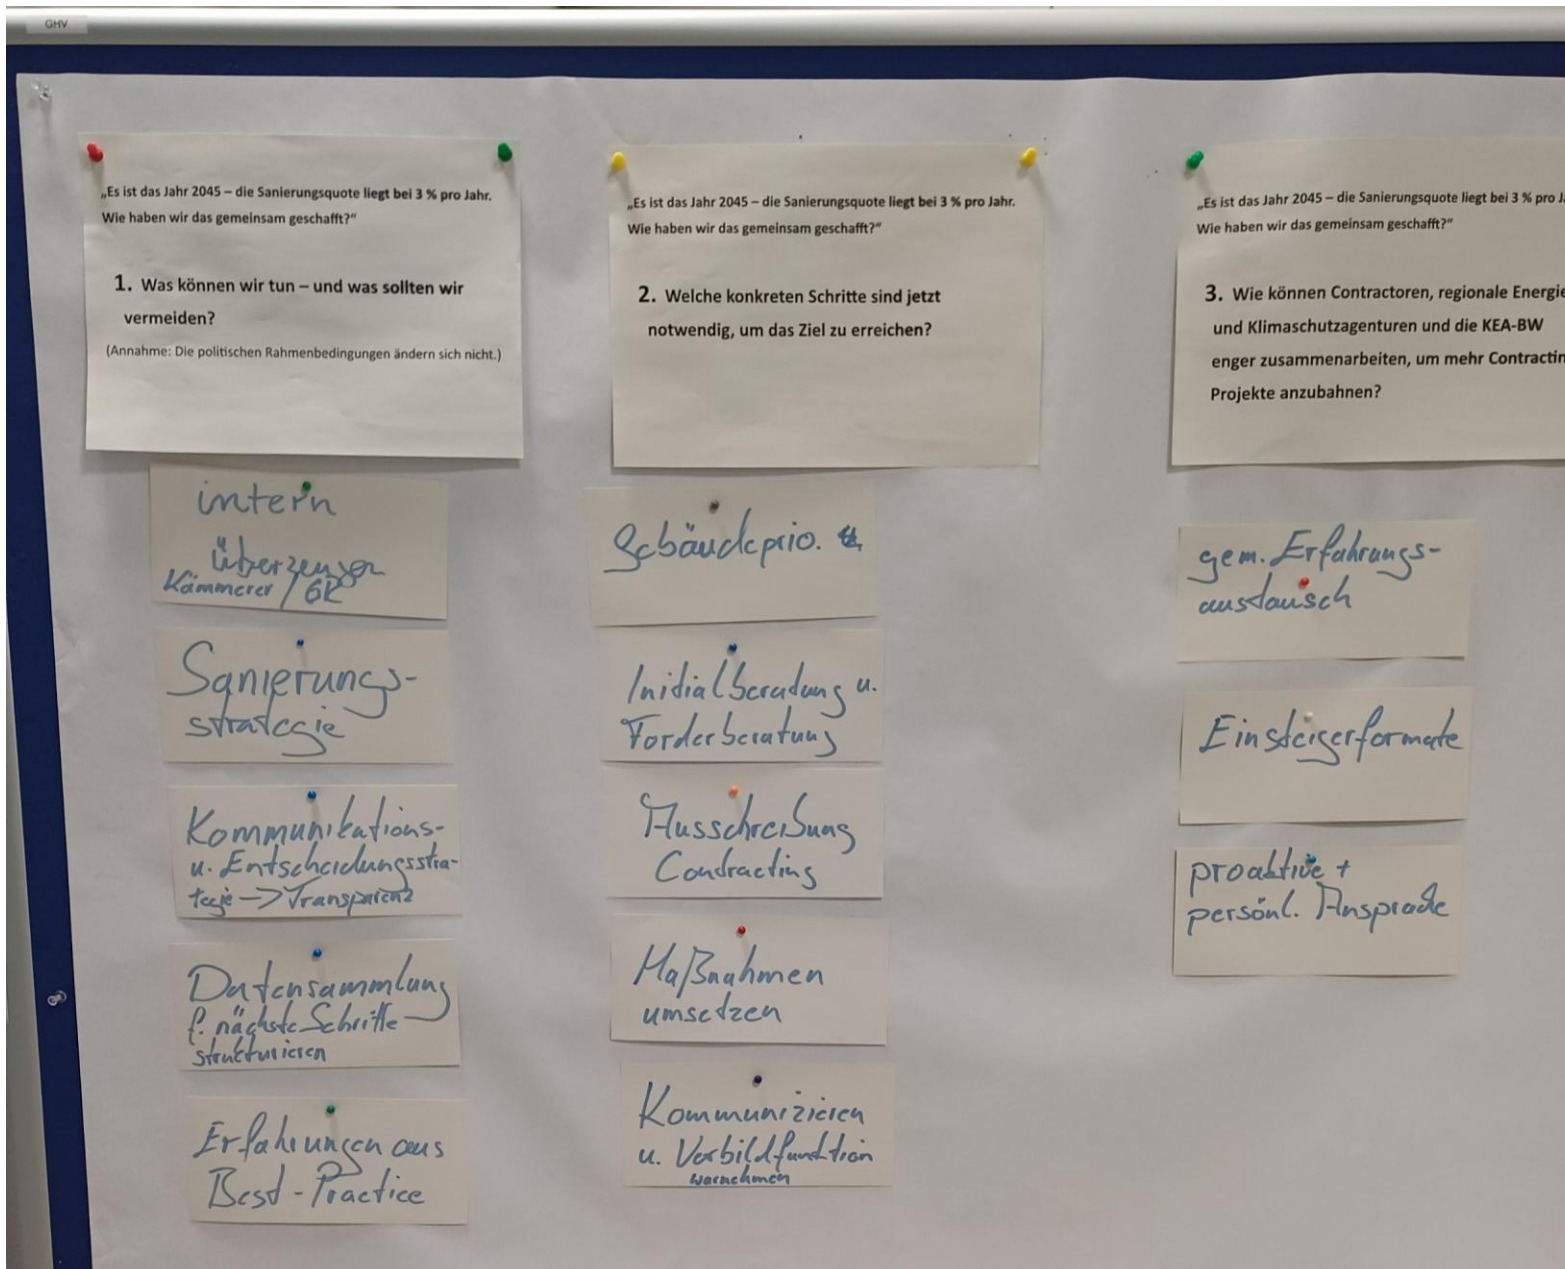 GHV
„Es ist das Jahr 2045 – die Sanierungsquote liegt bei 3 % pro Jahr.
Wie haben wir das gemeinsam geschafft?“
1. Was können wir tun – und was sollten wir
vermeiden?
(Annahme: Die politischen Rahmenbedingungen ändern sich nicht.)
intern
überzeugen
Kämmerer / GR
Sanierungs-
strategie
Kommunikations-
u. Entscheidungsstra-
tegie -> Transparenz
Datensammlung
f. nächste Schritte
strukturieren
Erfahrungen aus
Best-Practice
„Es ist das Jahr 2045 – die Sanierungsquote liegt bei 3 % pro Jahr.
Wie haben wir das gemeinsam geschafft?“
2. Welche konkreten Schritte sind jetzt
notwendig, um das Ziel zu erreichen?
Gebäudeprio.
Initialberatung u.
Förderberatung
Ausschreibung
Contracting
Maßnahmen
umsetzen
Kommunizieren
u. Vorbildfunktion
warnehmen
„Es ist das Jahr 2045 – die Sanierungsquote liegt bei 3 % pro J
Wie haben wir das gemeinsam geschafft?“
3. Wie können Contractoren, regionale Energie
und Klimaschutzagenturen und die KEA-BW
enger zusammenarbeiten, um mehr Contractin
Projekte anzubahnen?
gem. Erfahrungs-
austausch
Einsteigerformate
proaktive +
persönl. Ansprache